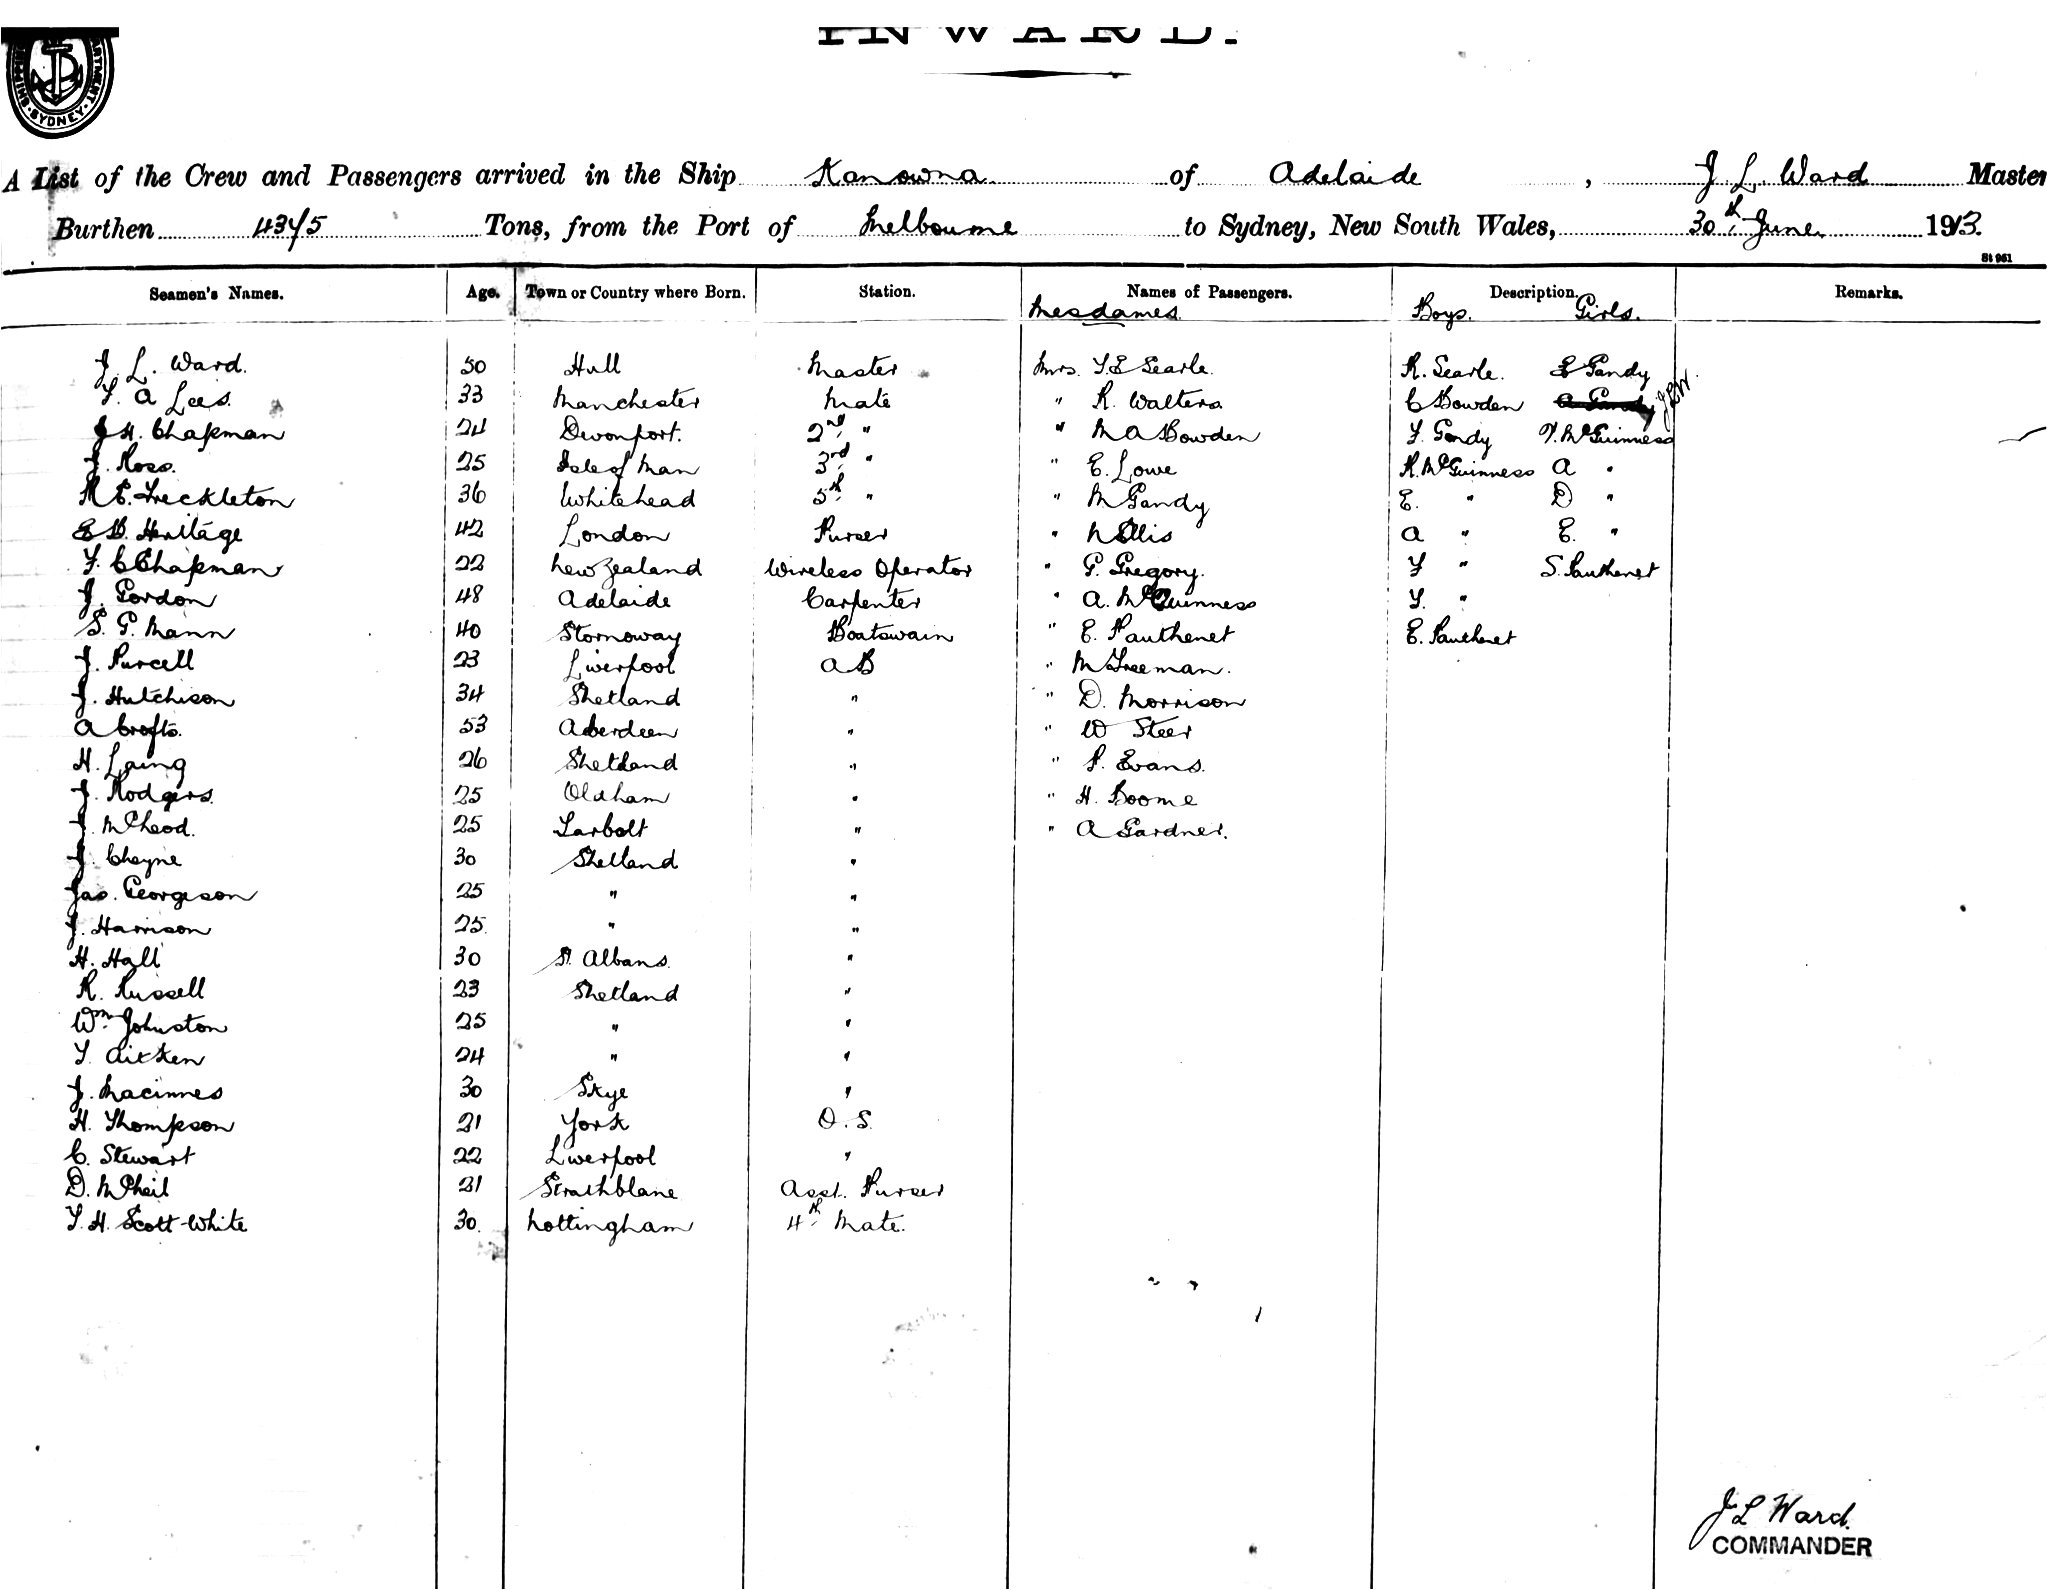 INWARD.
SHIPPING DEPARTMENT · SYDNEY
A List of the Crew and Passengers arrived in the Ship Kanowna of Adelaide, J L. Ward Master
Burthen Tons, from the Port of Melbourne to Sydney, New South Wales, 30th June 1913.
St 961
Seamen's Names. Age. Town or Country where Born. Station. Names of Passengers. Description. Remarks.
Mesdames. Boys. Girls.
J. L. Ward. 50 Hull Master Mrs. F. E Searle. R. Searle. E Gandy
F. A Lees. 33 Manchester Mate " R. Walters C Bowden A Gandy JLW.
J H. Chapman 24 Devonport. 2nd " " M A Bowden F. Gandy V. McGuinness
J. Ross. 25 Isle of Man 3rd " " E. Lowe R. McGuinness A "
R E. Freckleton 36 Whitehead 5th " " M Gandy E. " D "
E B. Heritage 42 London Purser " N Ellis A " E. "
F. C Chapman 22 New Zealand Wireless Operator " G. Gregory. F " S. Pauthenet
J. Gordon 48 Adelaide Carpenter " A. McGuinness F. "
S. G. Mann 40 Stornoway Boatswain " E. Pauthenet E. Pauthenet
J. Purcell 23 Liverpool AB " M Freeman.
J. Hutchison 34 Shetland " " D. Morrison
A Crofts. 53 Aberdeen " " W Steer
H. Laing 26 Shetland " " P. Evans.
J. Rodgers. 25 Oldham " " H. Boome
J. McLeod. 25 Tarbolt " " A Gardner.
J. Cheyne 30 Shetland "
Jas. Georgeson 25 " "
J. Harrison 25. " "
H. Hall 30 St. Albans. "
R. Russell 23 Shetland "
Wm. Johnston 25 " "
T. Aitken 24 " "
J. Macinnes 30 Skye "
H. Thompson 21 York O. S.
C. Stewart 22 Liverpool "
D. McNeil 21 Strathblane Asst. Purser
T. H. Scott-White 30. Nottingham 4th Mate.
J L Ward.
COMMANDER